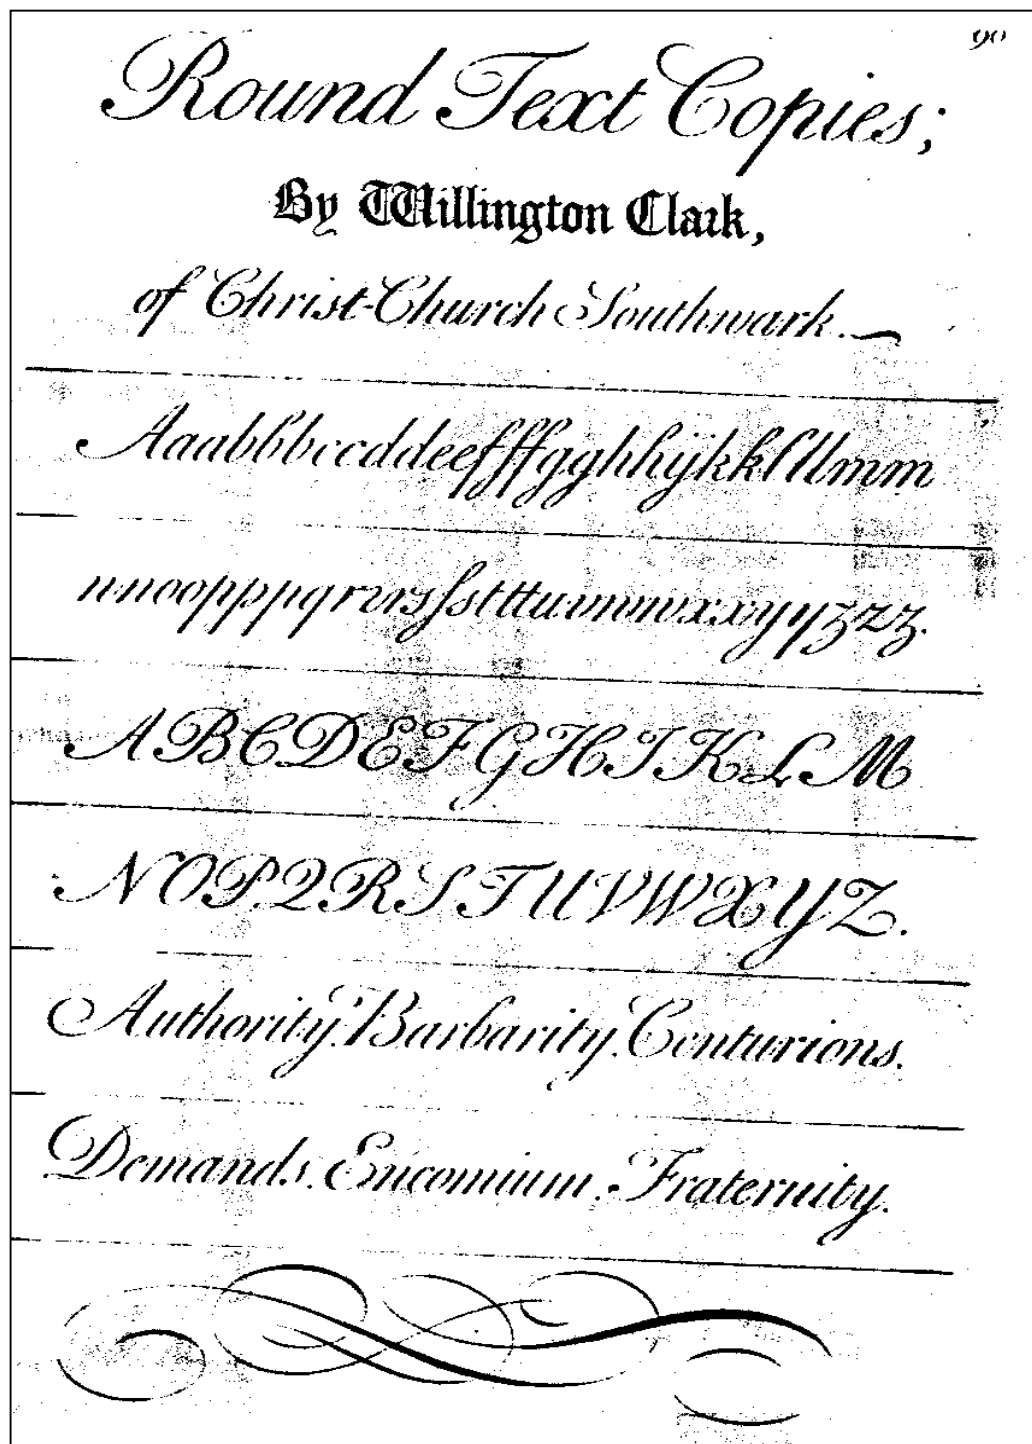 90
Round Text Copies;
By Willington Clark,
of Christ-Church Southwark.
Aaabbbbccddeefffgghhijkkſllmm
nnooppppqrrsſstttuvnwwxxyyzzz.
ABCDEFGHIKLM
NOPQRSTUVWXYZ.
Authority. Barbarity. Centurions.
Demands. Encomium. Fraternity.